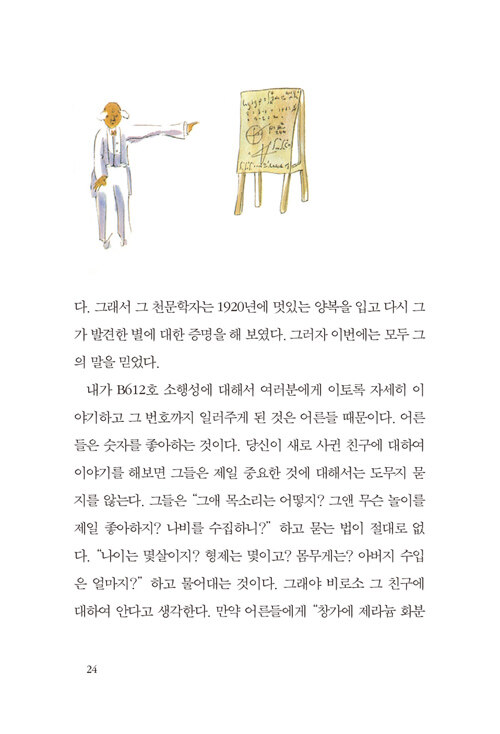 다. 그래서 그 천문학자는 1920년에 멋있는 양복을 입고 다시 그
가 발견한 별에 대한 증명을 해 보였다. 그러자 이번에는 모두 그
의 말을 믿었다.
내가 B612호 소행성에 대해서 여러분에게 이토록 자세히 이
야기하고 그 번호까지 일러주게 된 것은 어른들 때문이다. 어른
들은 숫자를 좋아하는 것이다. 당신이 새로 사귄 친구에 대하여
이야기를 해보면 그들은 제일 중요한 것에 대해서는 도무지 묻
지를 않는다. 그들은 “그애 목소리는 어떻지? 그앤 무슨 놀이를
제일 좋아하지? 나비를 수집하니?” 하고 묻는 법이 절대로 없
다. “나이는 몇살이지? 형제는 몇이고? 몸무게는? 아버지 수입
은 얼마지?” 하고 물어대는 것이다. 그래야 비로소 그 친구에
대하여 안다고 생각한다. 만약 어른들에게 “창가에 제라늄 화분
24